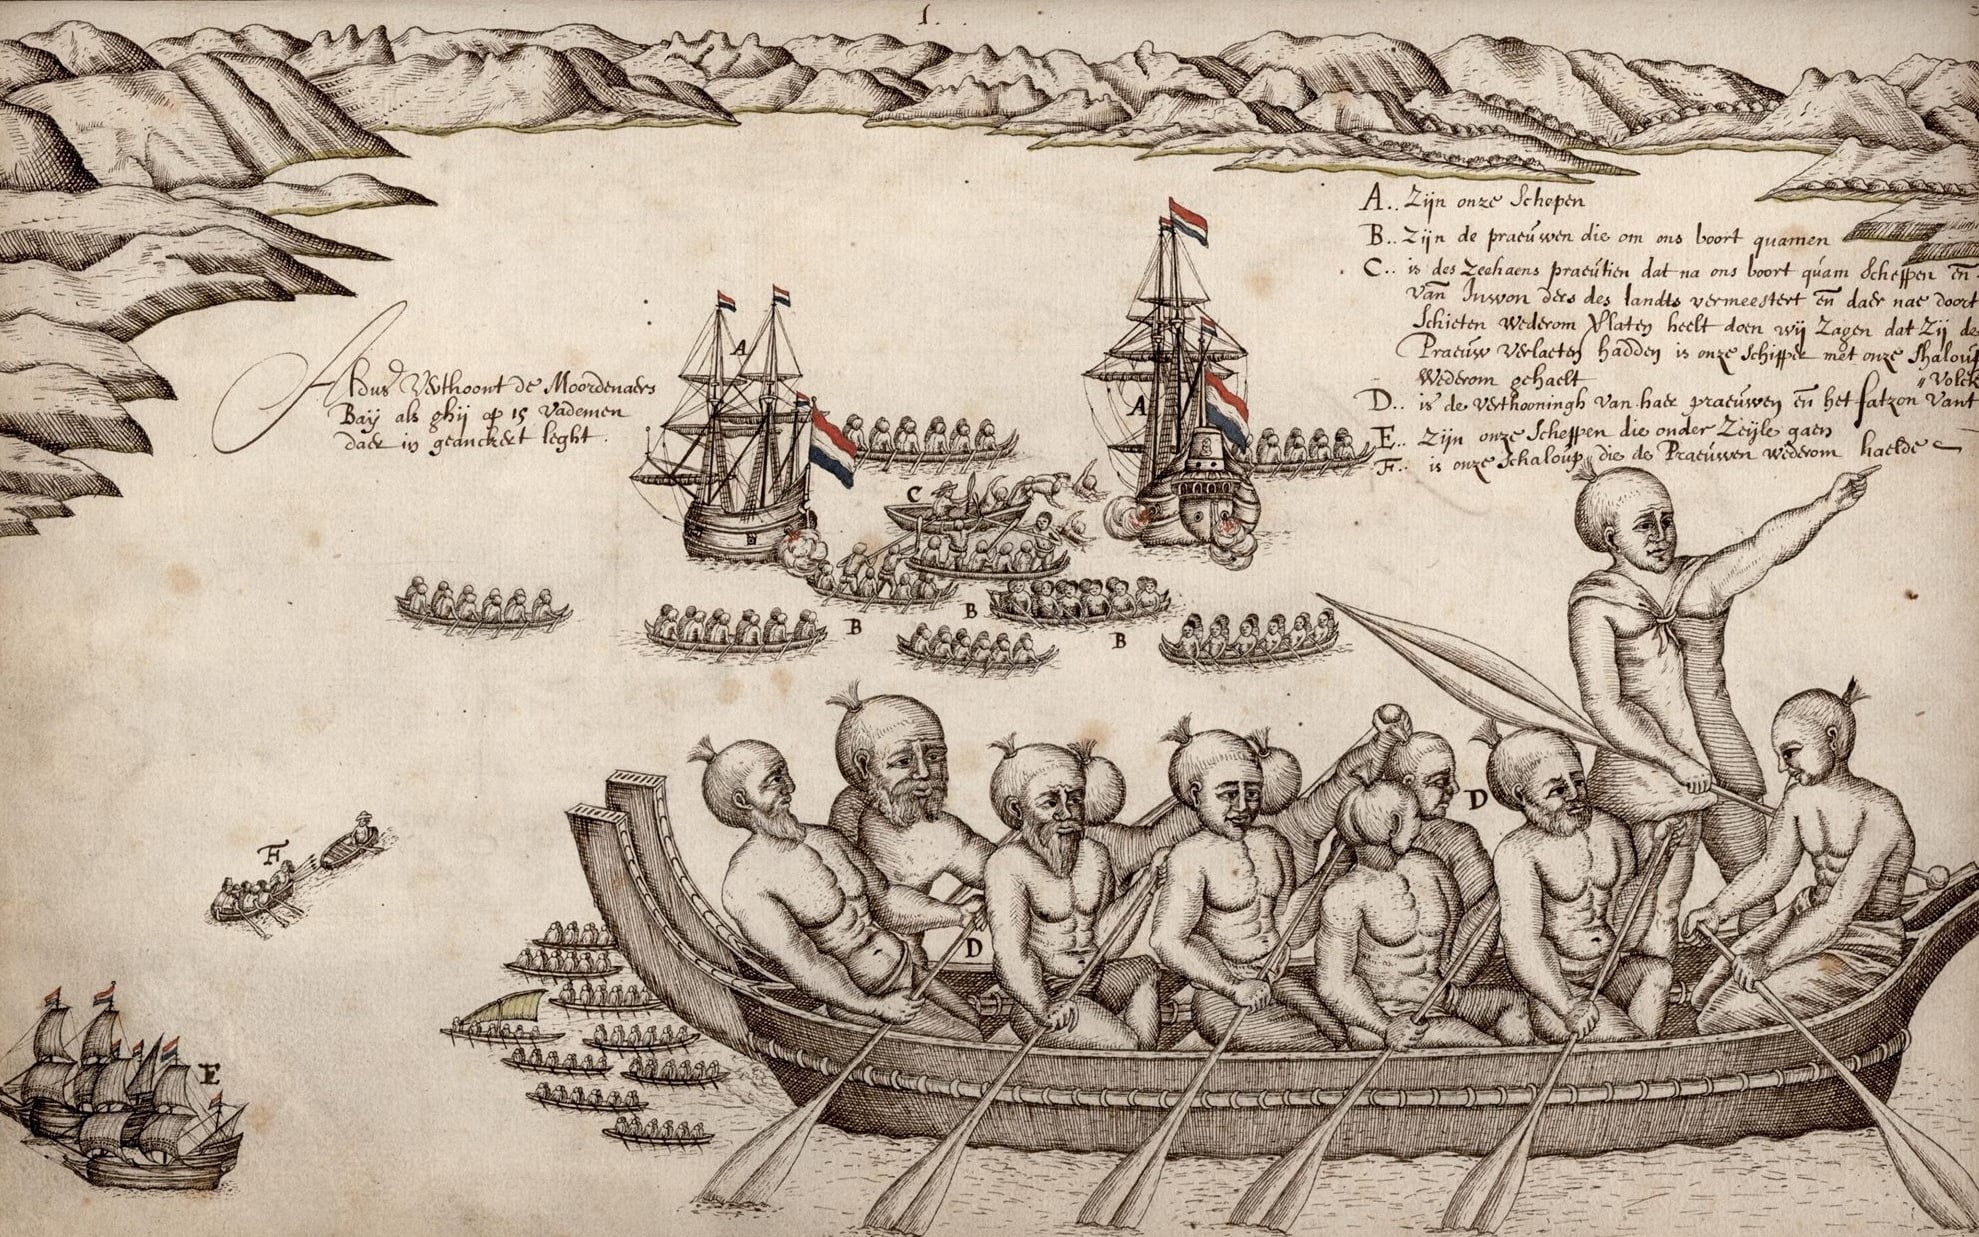 1.
A.. Zijn onze Schepen
B.. Zijn de praeúwen die om ons boort quamen
C.. is des Zeehaens praeútien dat na ons boort qúam Scheppen en
van Inwon ders des landts vermeestert en daer nae doort
Schieten wederom Verlaten heelt doen wij Zagen dat Zij de
Praeúw Verlaeten hadden is onze Schipper met onze Shaloup
Wederom gehaelt
"Volck
D.. is de Verthooningh van haer praeúwen en het fatzon vant
E.. Zijn onze Scheppen die onder Zeijle gaen
F.. is onze Schaloup die de Praeúwen wederom haelde
Aldus Verthoont de Moordenaers
Baij als ghij op 15 Vademen
daer in geanckert leght.
A
A
C
B
B
B
D
D
F
E